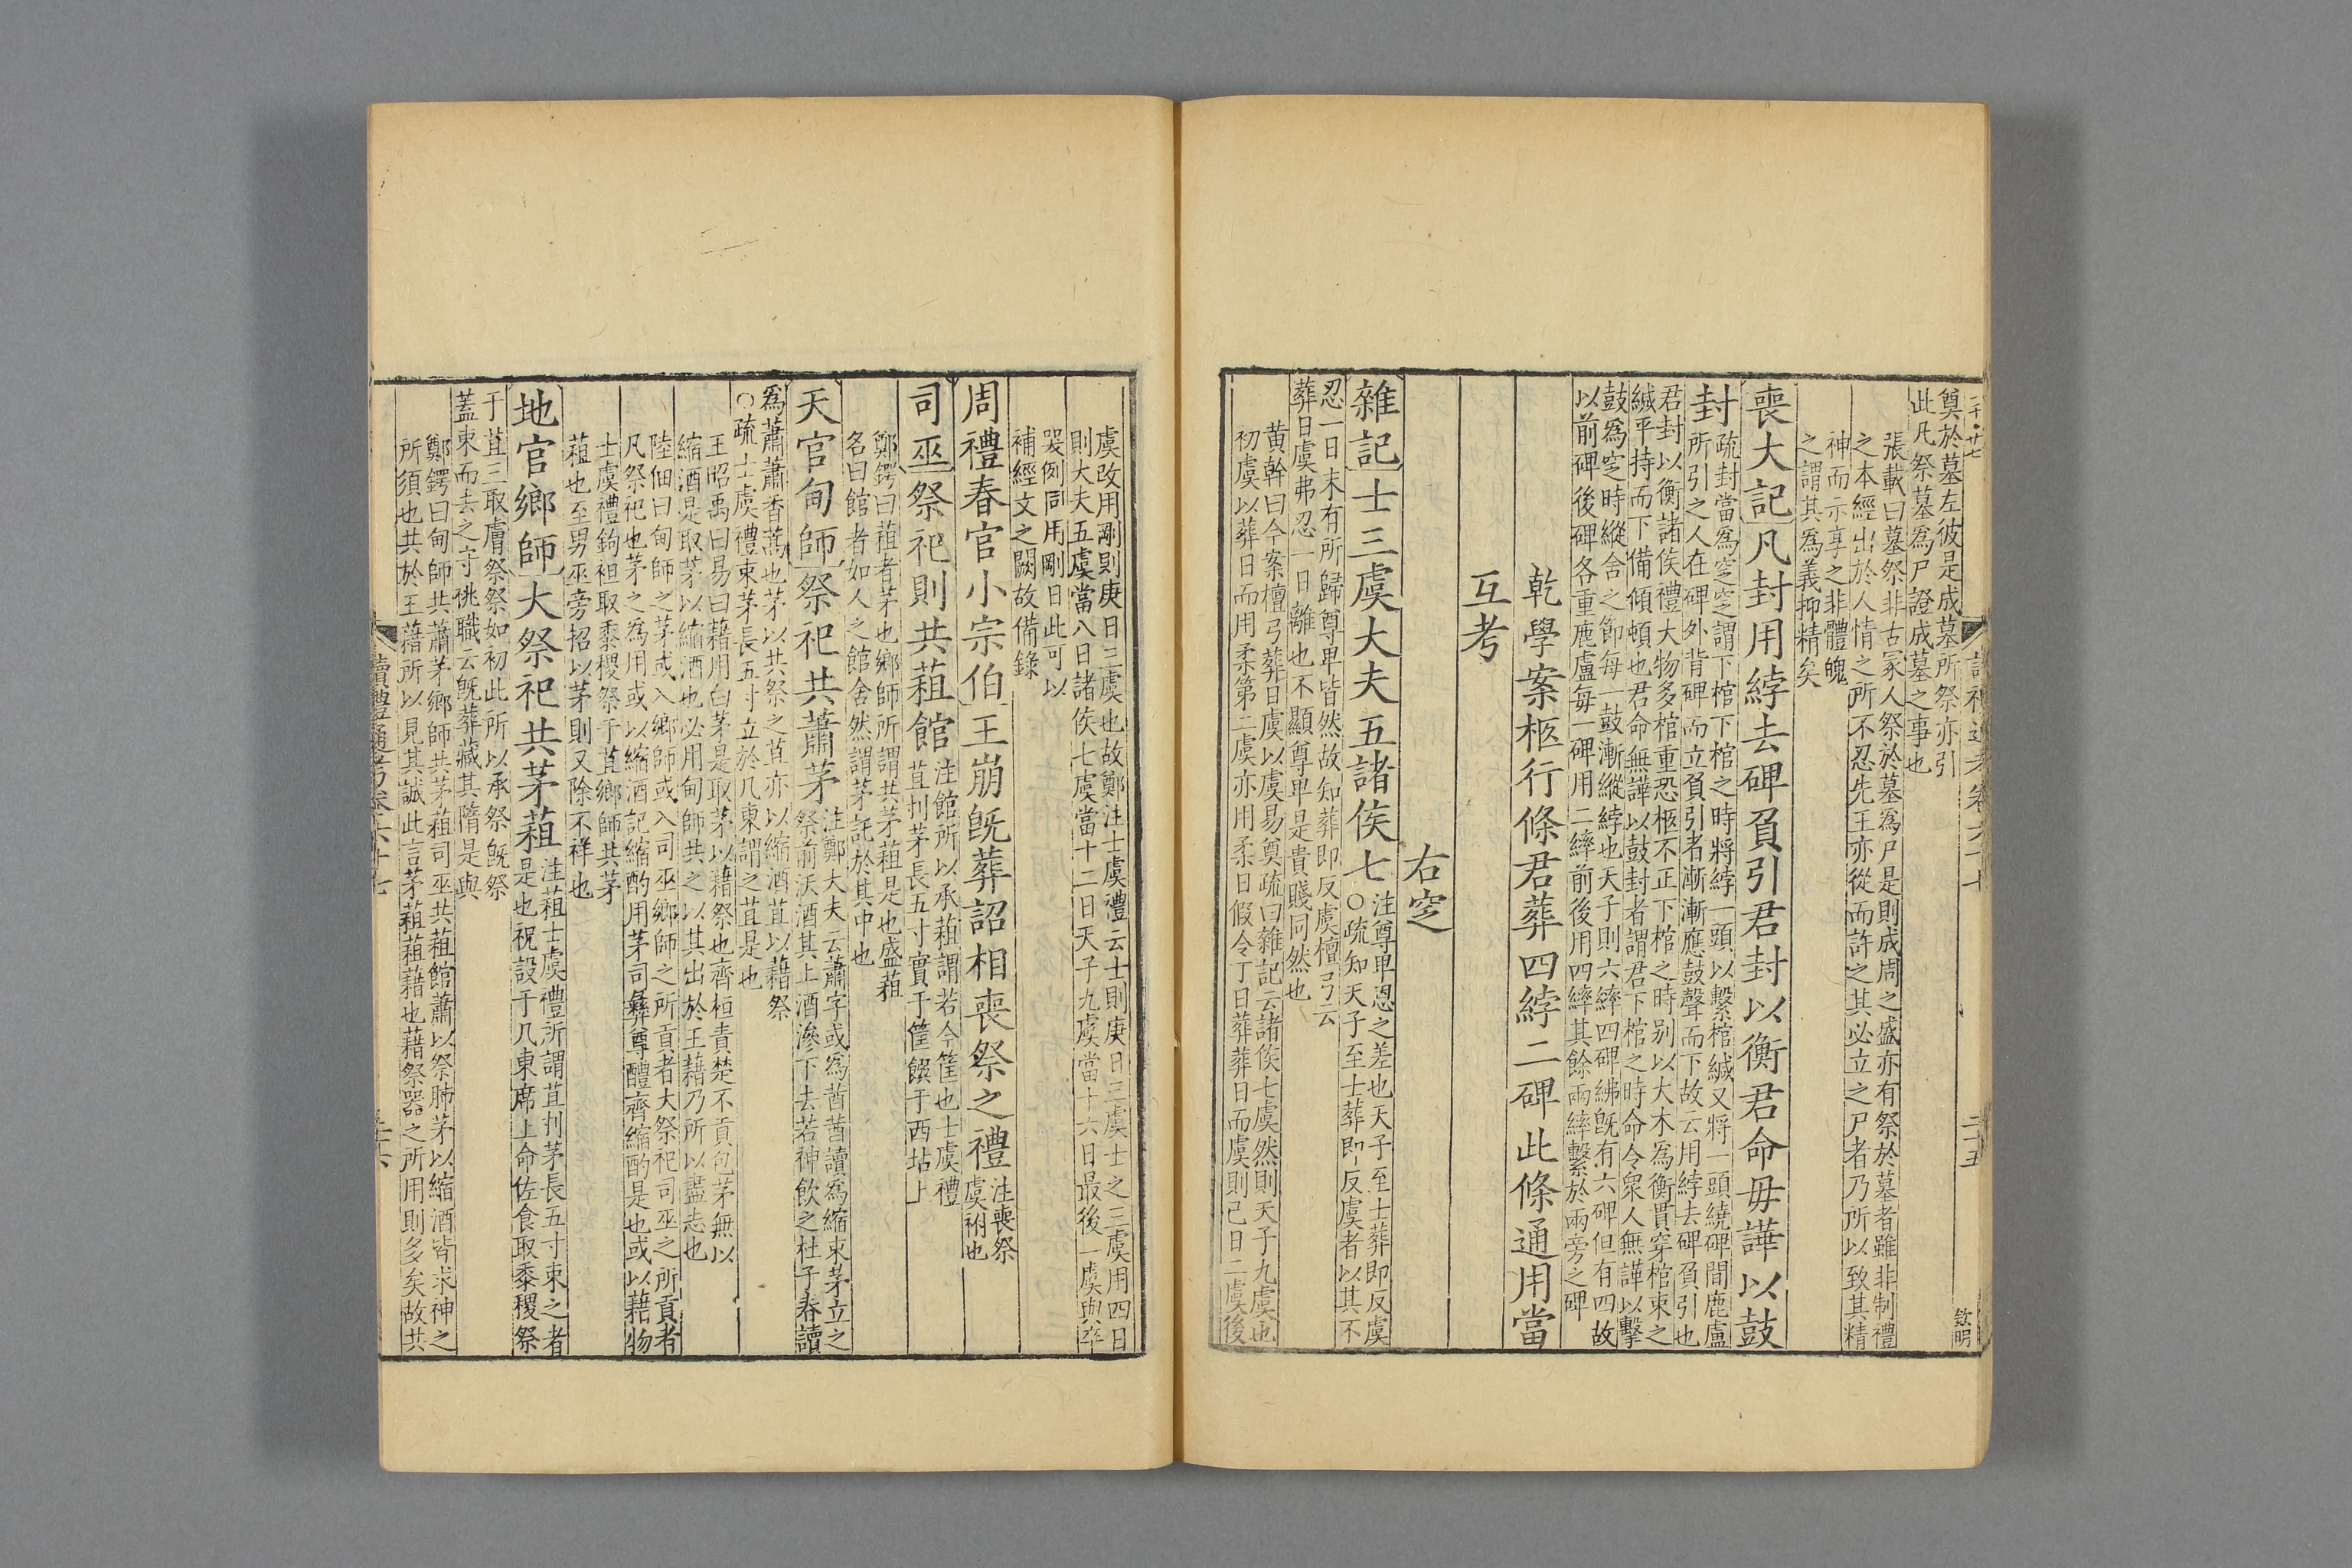 二十●廿七
讀禮通考卷六十七
二十五
欽明
奠於墓左彼是成墓所祭亦引
此凡祭墓爲尸證成墓之事也
張載曰墓祭非古冢人祭於墓爲尸是則成周之盛亦有祭於墓者雖非制禮
之本經出於人情之所不忍先王亦從而許之其必立之尸者乃所以致其精
神而示享之非體魄
之謂其爲義抑精矣
喪大記凡封用綍去碑負引君封以衡君命毋譁以鼓
封
疏封當爲窆窆謂下棺下棺之時將綍一頭以繫棺緘又將一頭繞碑間鹿盧
所引之人在碑外背碑而立負引者漸漸應鼓聲而下故云用綍去碑負引也
君封以衡諸侯禮大物多棺重恐柩不正下棺之時别以大木爲衡貫穿棺束之
緘平持而下備傾頓也君命無譁以鼓封者謂君下棺之時命令衆人無譁以擊
鼓爲窆時縱舍之節每一鼓漸縱綍也天子則六繂四碑紼旣有六碑但有四故
以前碑後碑各重鹿盧每一碑用二繂前後用四繂其餘兩繂繫於兩旁之碑
乾學案柩行條君葬四綍二碑此條通用當
互考
右窆
雜記士三虞大夫五諸侯七
注尊卑恩之差也天子至士葬即反虞
○疏知天子至士葬即反虞者以其不
忍一日末有所歸尊卑皆然故知葬即反虞檀弓云
葬日虞弗忍一日離也不顯尊卑是貴賤同然也
黃幹曰今案檀弓葬日虞以虞易奠疏曰雜記云諸侯七虞然則天子九虞也
初虞以葬日而用柔第二虞亦用柔日假令丁日葬葬日而虞則己日二虞後
虞改用剛則庚日三虞也故鄭注士虞禮云士則庚日三虞士之三虞用四日
則大夫五虞當八日諸侯七虞當十二日天子九虞當十六日最後一虞與卒
哭例同用剛日此可以
補經文之闕故備錄
周禮春官小宗伯王崩旣葬詔相喪祭之禮
注喪祭
虞祔也
司巫祭祀則共蒩館
注館所以承蒩謂若今筐也士虞禮
苴刌茅長五寸實于筐饌于西坫上
鄭鍔曰蒩者茅也鄉師所謂共茅蒩是也盛蒩
名曰館者如人之館舍然謂茅託於其中也
天官甸師祭祀共蕭茅
注鄭大夫云蕭字或爲莤莤讀爲縮束茅立之
祭前沃酒其上酒滲下去若神飮之杜子春讀
爲蕭蕭香蒿也茅以共祭之苴亦以縮酒苴以藉祭
○疏士虞禮束茅長五寸立於几東謂之苴是也
王昭禹曰易曰藉用白茅是取茅以藉祭也齊桓責楚不貢包茅無以
縮酒是取茅以縮酒也必用甸師共之以其出於王藉乃所以盡志也
陸佃曰甸師之茅或入鄉師或入司巫鄉師之所貢者大祭祀司巫之所貢者
凡祭祀也茅之爲用或以縮酒記縮酌用茅司彝尊醴齊縮酌是也或以藉物
士虞禮鉤袒取黍稷祭于苴鄉師共茅
蒩也至男巫旁招以茅則又除不祥也
地官鄉師大祭祀共茅蒩
注蒩士虞禮所謂苴刌茅長五寸束之者
是也祝設于几東席上命佐食取黍稷祭
于苴三取膚祭祭如初此所以承祭旣祭
蓋束而去之守祧職云旣葬藏其隋是與
鄭鍔曰甸師共蕭茅鄉師共茅蒩司巫共蒩館蕭以祭肺茅以縮酒皆求神之
所須也共於王藉所以見其誠此言茅蒩蒩藉也藉祭器之所用則多矣故共
讀禮通考卷六十七
二十六